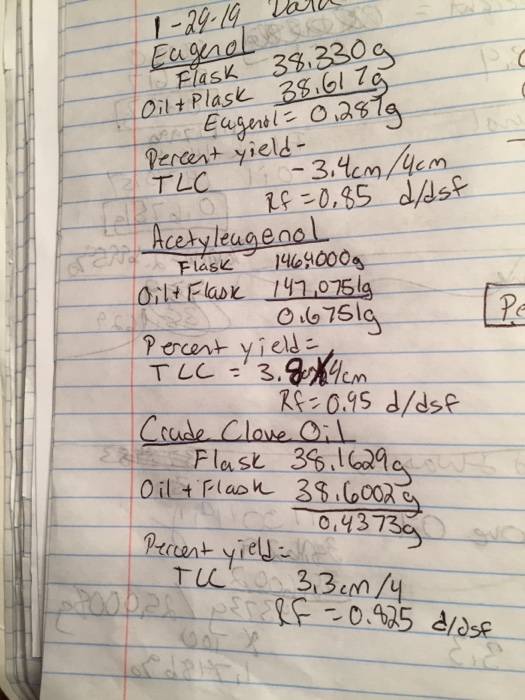 1-29-19 Data
Eugenol
Flask 38.330g
Oil + Flask 38.617g
Eugenol = 0.287g
Percent yield-
TLC - 3.4cm/4cm
Rf = 0.85 d/dsf
Acetyleugenol
Flask 146.4000g
Oil + Flask 147.0751g
0.6751g
Percent yield =
TLC = 3.8cm/4cm
Rf = 0.95 d/dsf
Crude Clove Oil
Flask 38.1629g
Oil + Flask 38.6002g
0.4373g
Percent yield =
TLC 3.3cm/4
Rf = 0.825 d/dsf
Pe